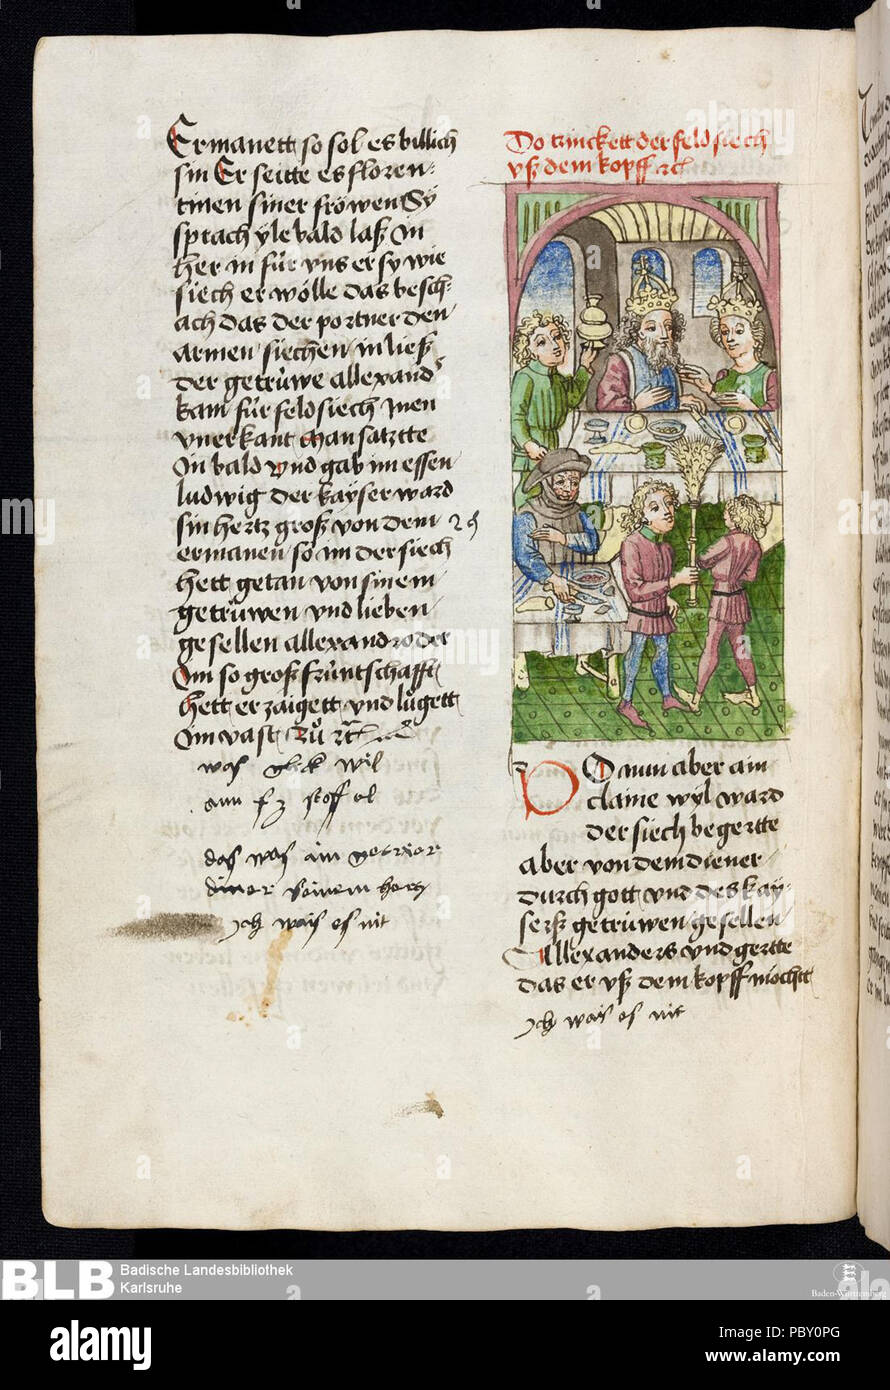 Ermanett so sol es billich
sin Er seitte es floren:
tinen siner fröwen Sÿ
sprach yle bald laß in
her in für vns er sy wie
siech er wölle das besch:
ach das der portner den
armen siechen in ließ
der getrüwe allexand
kam für feldsiech inen
vnerkant man satztte
In bald vnd gab im essen
ludwig der kayser ward
sin hertz groß von dem
ermanen so im der siech
hett getan von sinem
getrüwen vnd lieben
gesellen allexandro der
Im so groß früntschafft
hett erzaigett vnd lůgett
Im vast zů
was glick wil
das was ain
ich wais es nit
Do trinckett der feld siech
vß dem kopff
DO nun aber ain
claine wyl ward
der siech begertte
aber von dem diener
durch gott vnd des kay:
serß getrüwen gesellen
Allexanders vnd gertte
das er vß dem kopff möchtt
ich wais es nit
BLB Badische Landesbibliothek
Karlsruhe
Baden-Württemberg
alamy
Image ID: PBY0PG
www.alamy.com